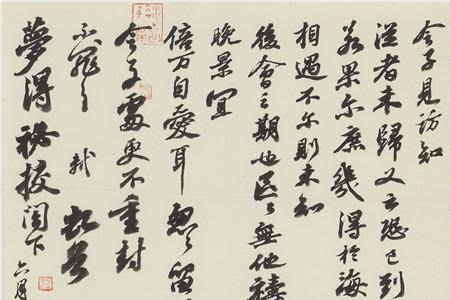 令子見訪知
從者未歸又云恐已到
若果尔庶幾得於海
相遇不尔則未知
後會之期也區々無他禱
晚景宜
倍万自愛耳怱々留
令子處更不重封
不罪々軾頓首
夢得祕挍閣下六月